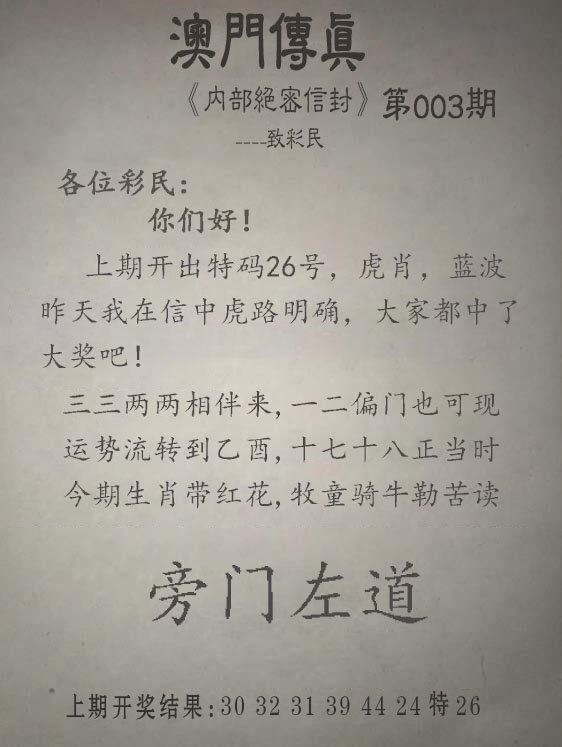 澳門傳眞
《内部絕密信封》第003期
----致彩民
各位彩民：
你们好！
上期开出特码26号，虎肖，蓝波
昨天我在信中虎路明确，大家都中了
大奖吧！
三三两两相伴来,一二偏门也可现
运势流转到乙酉,十七十八正当时
今期生肖带红花,牧童骑牛勒苦读
旁门左道
上期开奖结果:30 32 31 39 44 24 特 26